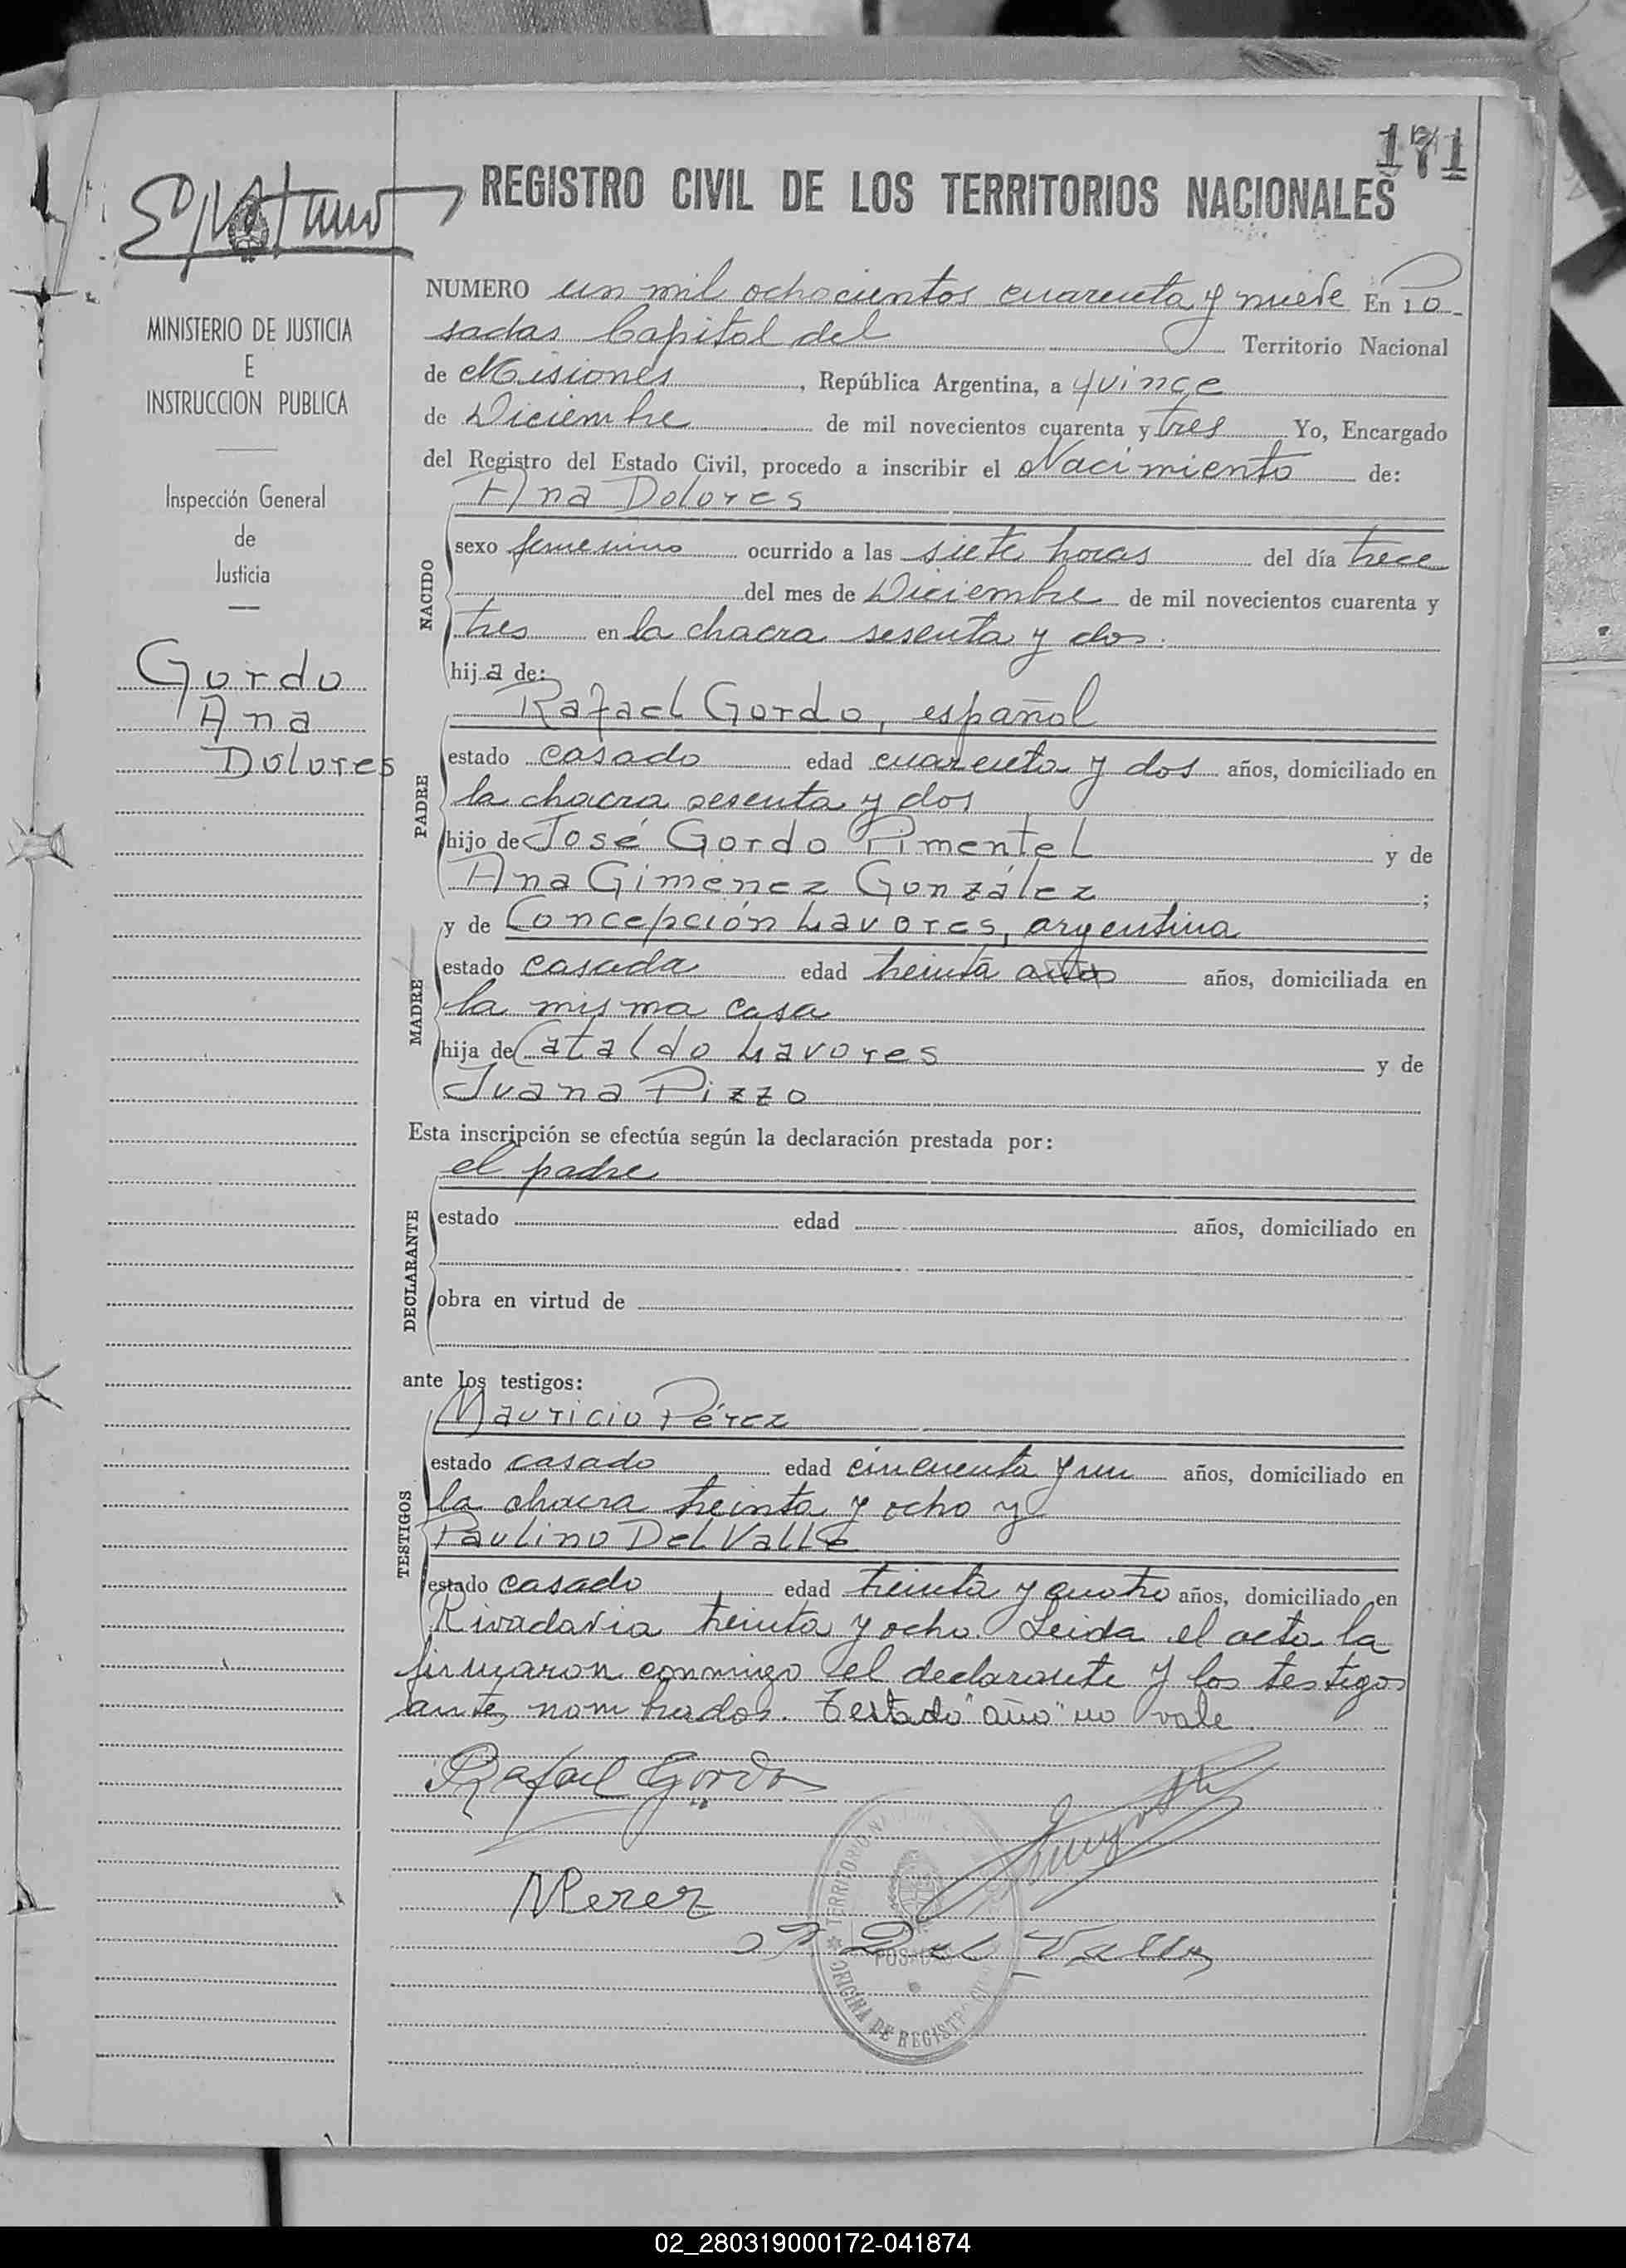 171
REGISTRO CIVIL DE LOS TERRITORIOS NACIONALES
MINISTERIO DE JUSTICIA
E
INSTRUCCION PUBLICA
Inspección General
de
Justicia
Gordo
Ana
Dolores
NUMERO un mil ochocientos cuarenta y nueve En Po
sadas Capital del Territorio Nacional
de Misiones, República Argentina, a quince
de Diciembre de mil novecientos cuarenta y tres Yo, Encargado
del Registro del Estado Civil, procedo a inscribir el Nacimiento de:
Ana Dolores
NACIDO
sexo femenino ocurrido a las siete horas del día trece
del mes de Diciembre de mil novecientos cuarenta y
tres en la chacra sesenta y dos.
hija de:
Rafael Gordo, español
PADRE
estado casado edad cuarenta y dos años, domiciliado en
la chacra sesenta y dos
hijo de José Gordo Pimentel y de
Ana Giménez González ;
y de Concepción Lavores, argentina
MADRE
estado casada edad treinta años años, domiciliada en
la misma casa
hija de Cataldo Lavores y de
Juana Pizzo
Esta inscripción se efectúa según la declaración prestada por:
el padre
DECLARANTE
estado edad años, domiciliado en
obra en virtud de
ante los testigos:
Mauricio Pérez
TESTIGOS
estado casado edad cincuenta y un años, domiciliado en
la chacra treinta y ocho y
Paulino Del Valle
estado casado edad treinta y cuatro años, domiciliado en
Rivadavia treinta y ocho. Leida el acta la
firmaron conmigo el declarante y los testigos
antes nombrados. Testado "año" no vale
Rafael Gordo
MPerez
P Del Valle
TERRITORIO NA
POSADAS
OFICINA DE REGISTRO
02_280319000172-041874